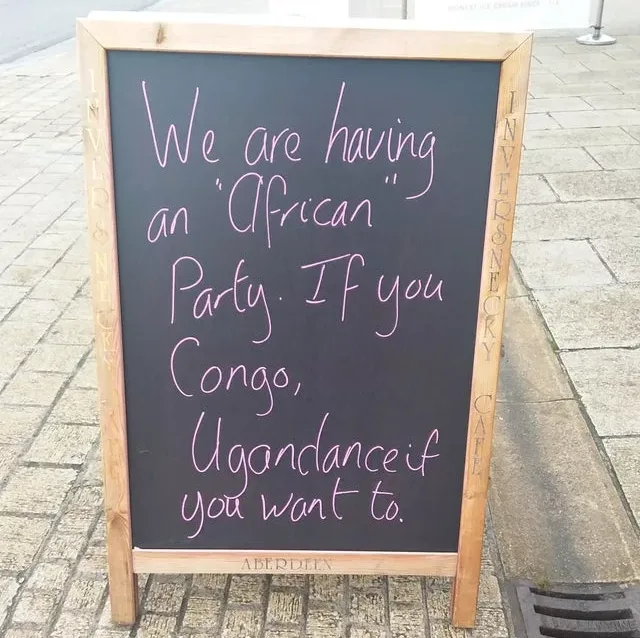 We are having
an "African"
Party. If you
Congo,
Ugandance if
you want to.
INVERSNECKY
INVERSNECKY CAFE
ABERDEEN